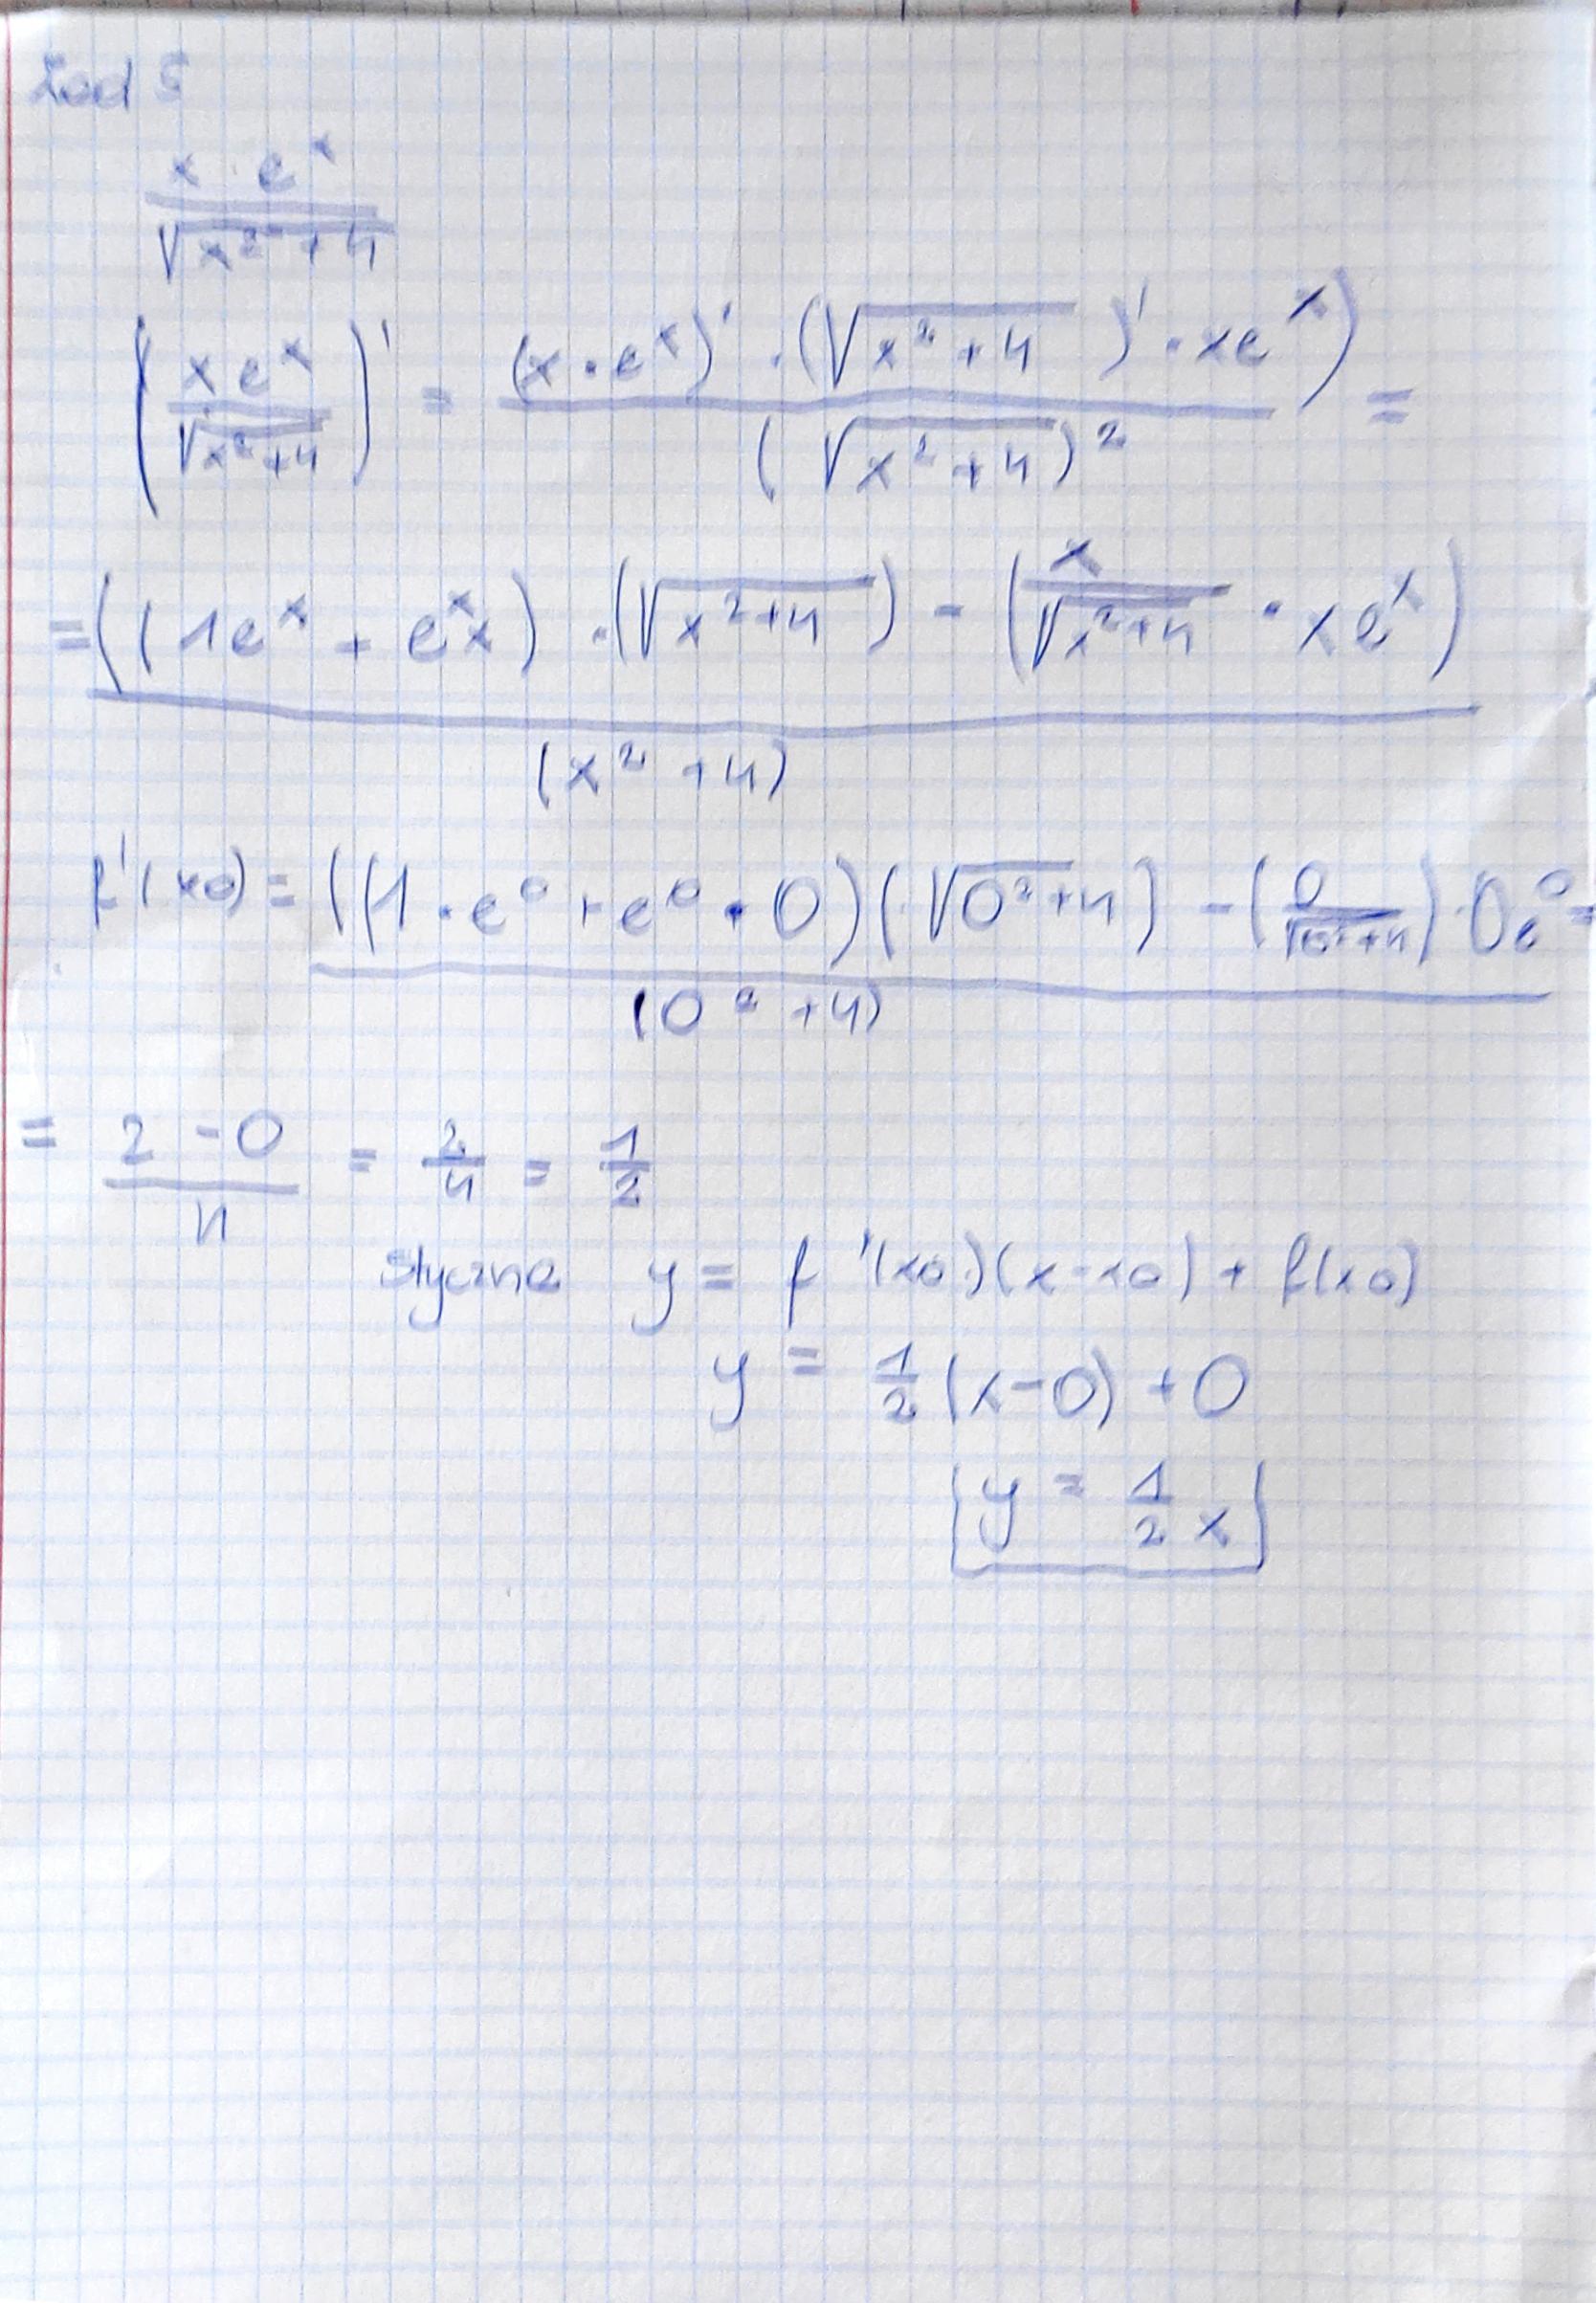 Zad 5
x · e^x / √(x² + 4)
(x e^x / √(x²+4))' = (x · e^x)' · (√(x² + 4))' · x e^x) / (√(x² + 4))² =
= ((1e^x + e^x x) · (√(x²+4)) - (x / √(x²+4) · x e^x) / (x² + 4)
f'(x0) = ((1 · e⁰ + e⁰ · 0)(√(0²+4)) - (0 / √(0²+4)) · 0e⁰ / (0² + 4) =
= (2 - 0) / 4 = 2/4 = 1/2
styczna y = f'(x0)(x - x0) + f(x0)
y = 1/2 (x - 0) + 0
y = 1/2 x